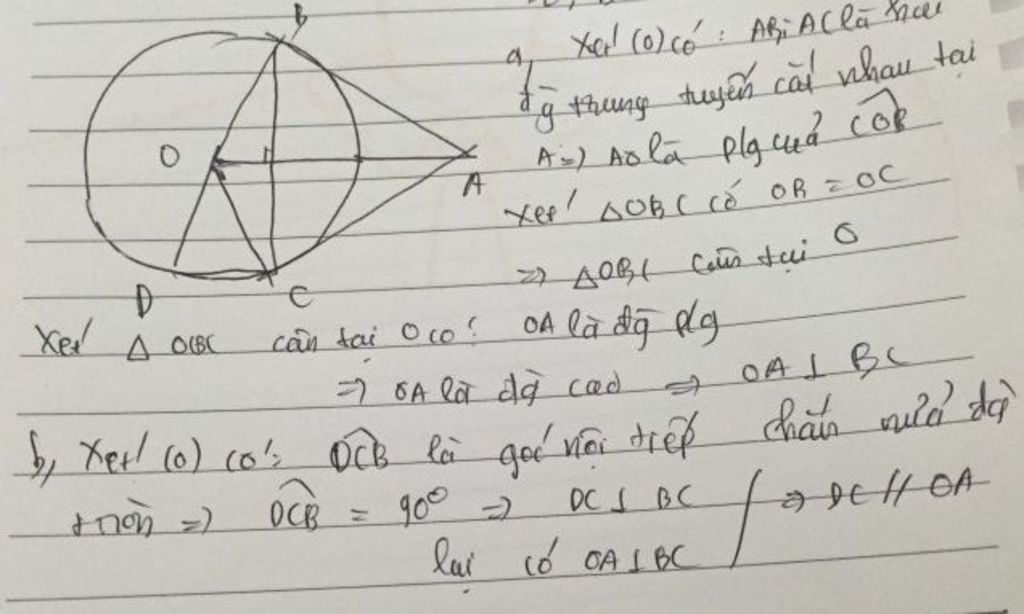 B
O
A
D
C
a, Xét (O) có: AB; AC là hai
đg trung tuyến cắt nhau tại
A => AO là p/g của COB
Xét ΔOBC có OB = OC
=> ΔOBC cân tại O
Xét Δ OBC cân tại O có: OA là đg p/g
=> OA là đg cao => OA ⊥ BC
b, Xét (O) có: DCB là góc nội tiếp chắn nửa đg
tròn => DCB = 90° => DC ⊥ BC
=> DC // OA
lại có OA ⊥ BC